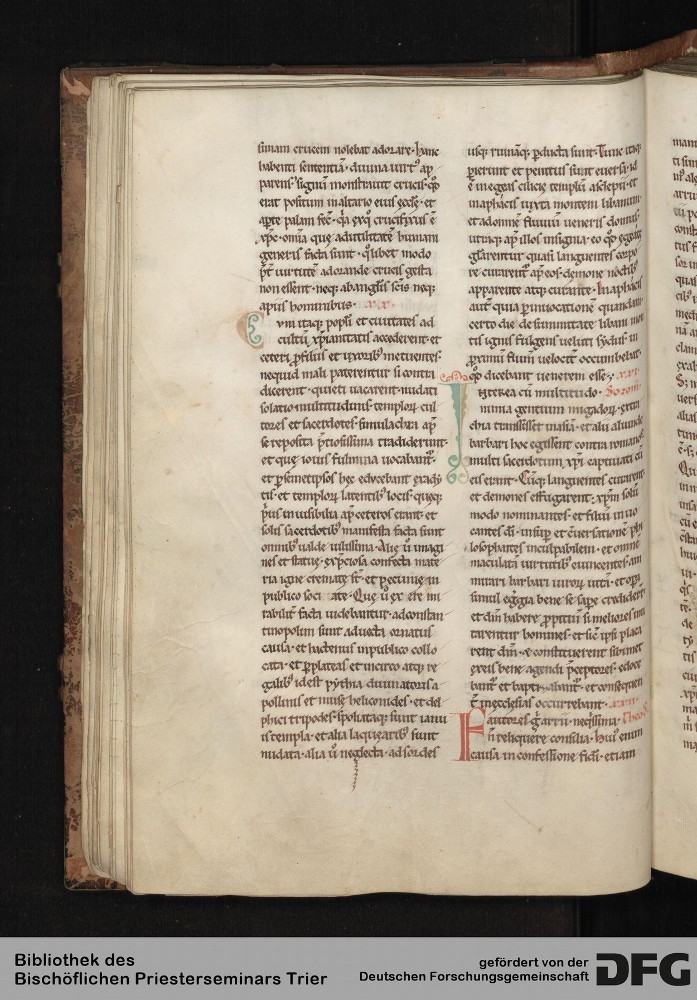 simam crucem nolebat adorare· hanc
habenti sententiā· diuina uirt᷒ ap
parens· signū monstrauit crucis· qđ
erat positum in altario eius ęcclę· et
apte palam fec̄· qa exq̊ crucifixus ē
xp̄c· omīa quę ad utilitatē humani
generis facta sunt· q̊libet modo
p̄t uirtutē adorandę crucis gesta
non essent· neq; ab anglis scīs neq;
a piis hominibus· xx·
Cum itaq; popłi et ciuitates ad
cultū xp̄ianitatis accederent· et
ceteri p̱fisius et uxorib᷒ metuentes·
nequid mali paterentur si contra
dicerent· quieti uacarent· nudati
solatio multitudinis· templorꝝ cul
tores et sacerdotes· simulachra ap̄
se reposita p̄tiosissima tradiderunt·
et que iouis fulmina uocabant᷑·
et p̱ semetipsos hęc educebant ex ady
tis· et templorꝝ latentib᷒ locis· quęq;
p̄us inuisibilia ap̄ ceteros erant· et
solis sacerdotib᷒ manifesta facta sunt
omnib᷒ ualde uilissima· Alię u̅ imagi
nes et statuę· ex p̄ciosa confecta mate
ria igne cremate st̄· et pecunię in
publico soci ate· Quę u̅ ex ere mi
rabilit᷑ facta uidebantur· ad constan
tinopolim sunt aduecta ornatus
causa· et hactenus in publico collo
cata· et p̱ plateas et in circo atq; re
galib᷒ id est pythia diuinatoris a
pollinis et muse heliconides· et del
phici tripodes· spoliataq; sunt ianu
is templa· et alia laquearib᷒ sunt
nudata· alia u̅ neglecta· ad sordes
usq; ruināq; p̱ducta sunt· Tunc itaq;
p̱ierunt et penitus sunt euersa· id
ē in egeas cilicię templū asclepii· et
in aphacis iuxta montem libanum·
et adonnē fluuiū ueneris domus·
utraq; ap̄ illos insignia· eo qđ egeatę
gl̄arentur quasi languentes corpo
re curarent᷑ ap̄ eos· demone noctib᷒
apparente atq; curante· In aphacis
aut̄ quia p̱ inuocationē quandam
certo die de summitate libani mon
tis ignis fulgens ueluti sydus· in
p̱ximū fluuiū uelocit᷑ occumbebat·
qđ dicebant uenerem esse· xxi·
Preterea cū multitudo· Sozom̄
nimia gentium migadorꝝ· extra
chia transisset in asiā· et alii aliunde
barbari hoc egissent contra romanos·
multi sacerdotum xp̄i captiuati cū
eis erant· Cūq; languentes curarent·
et demones effugarent· xp̄m solū
modo nominantes· et filiū inuo
cantes dī· insup̱ et c̄uersatione phy
losophantes inculpabilem· et omnē
maculatā uirtutib᷒ euincentes· am
mirari barbari uirorꝝ uitā· et opa
simul egregia bene se sape crediderūt·
et dm̄ habere p̱pitiū si meliores imi
tarentur homines· et sic̄ ipsi placa
rent dm̄· & constituerent sibimet
ex eis bene agendi p̄ceptores· edoce
bant᷑ et baptizabant᷑· et consequent᷑
t᷑ in ecclesias occurrebant· xxii·
Fautores q̄ arrii necissima· Theod̄
n̄ reliquere consilia· Hui᷒ enim
causa in confessione fidei· et iam
Bibliothek des
Bischöflichen Priesterseminars Trier
gefördert von der
Deutschen Forschungsgemeinschaft
DFG